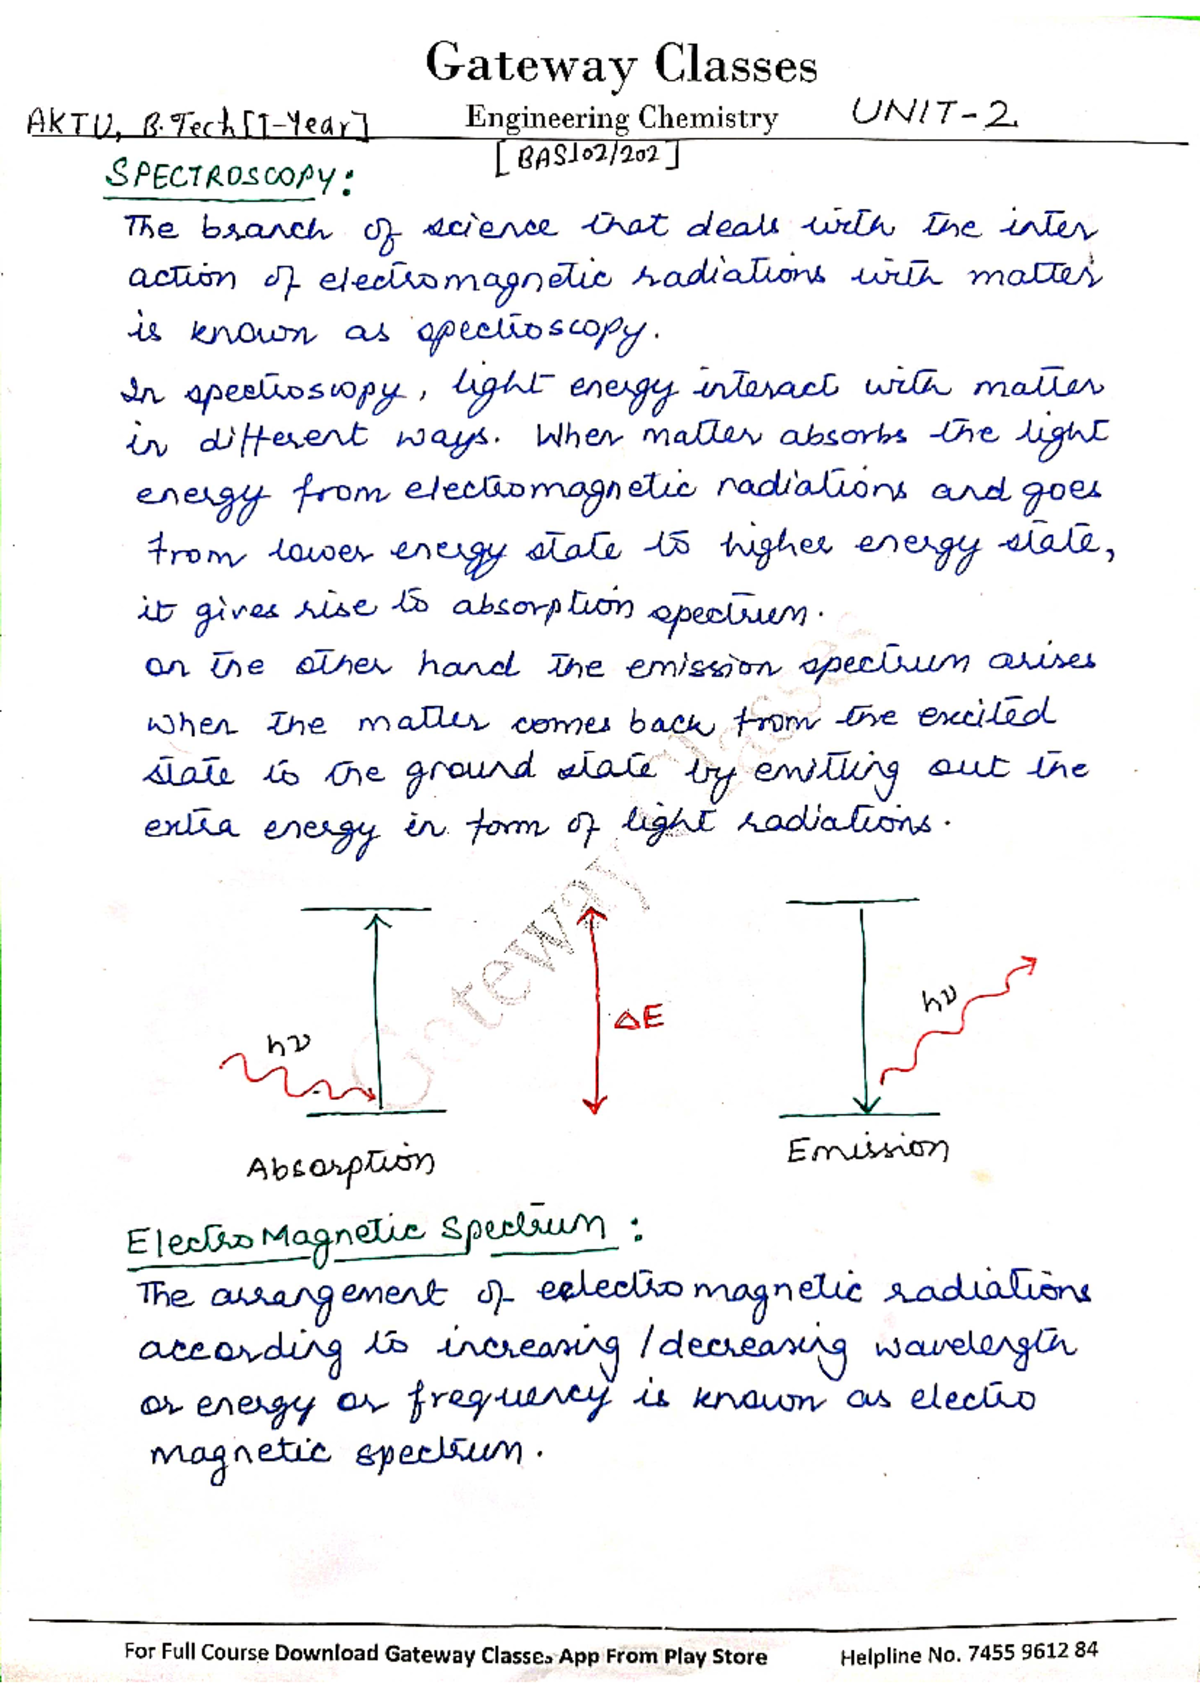 Gateway Classes
AKTU, B.Tech [I-Year] Engineering Chemistry UNIT-2
[BAS102/202]
SPECTROSCOPY:
The branch of science that deals with the inter
action of electromagnetic radiations with matter
is known as spectroscopy.
In spectroscopy, light energy interact with matter
in different ways. When matter absorbs the light
energy from electromagnetic radiations and goes
from lower energy state to higher energy state,
it gives rise to absorption spectrum.
on the other hand the emission spectrum arises
when the matter comes back from the excited
state to the ground state by emitting out the
extra energy in form of light radiations.
Gateway Classes
hν
ΔE
hν
Absorption
Emission
ElectroMagnetic Spectrum:
The arrangement of eelectromagnetic radiations
according to increasing/decreasing wavelength
or energy or frequency is known as electro
magnetic spectrum.
For Full Course Download Gateway Classes App From Play Store Helpline No. 7455 9612 84